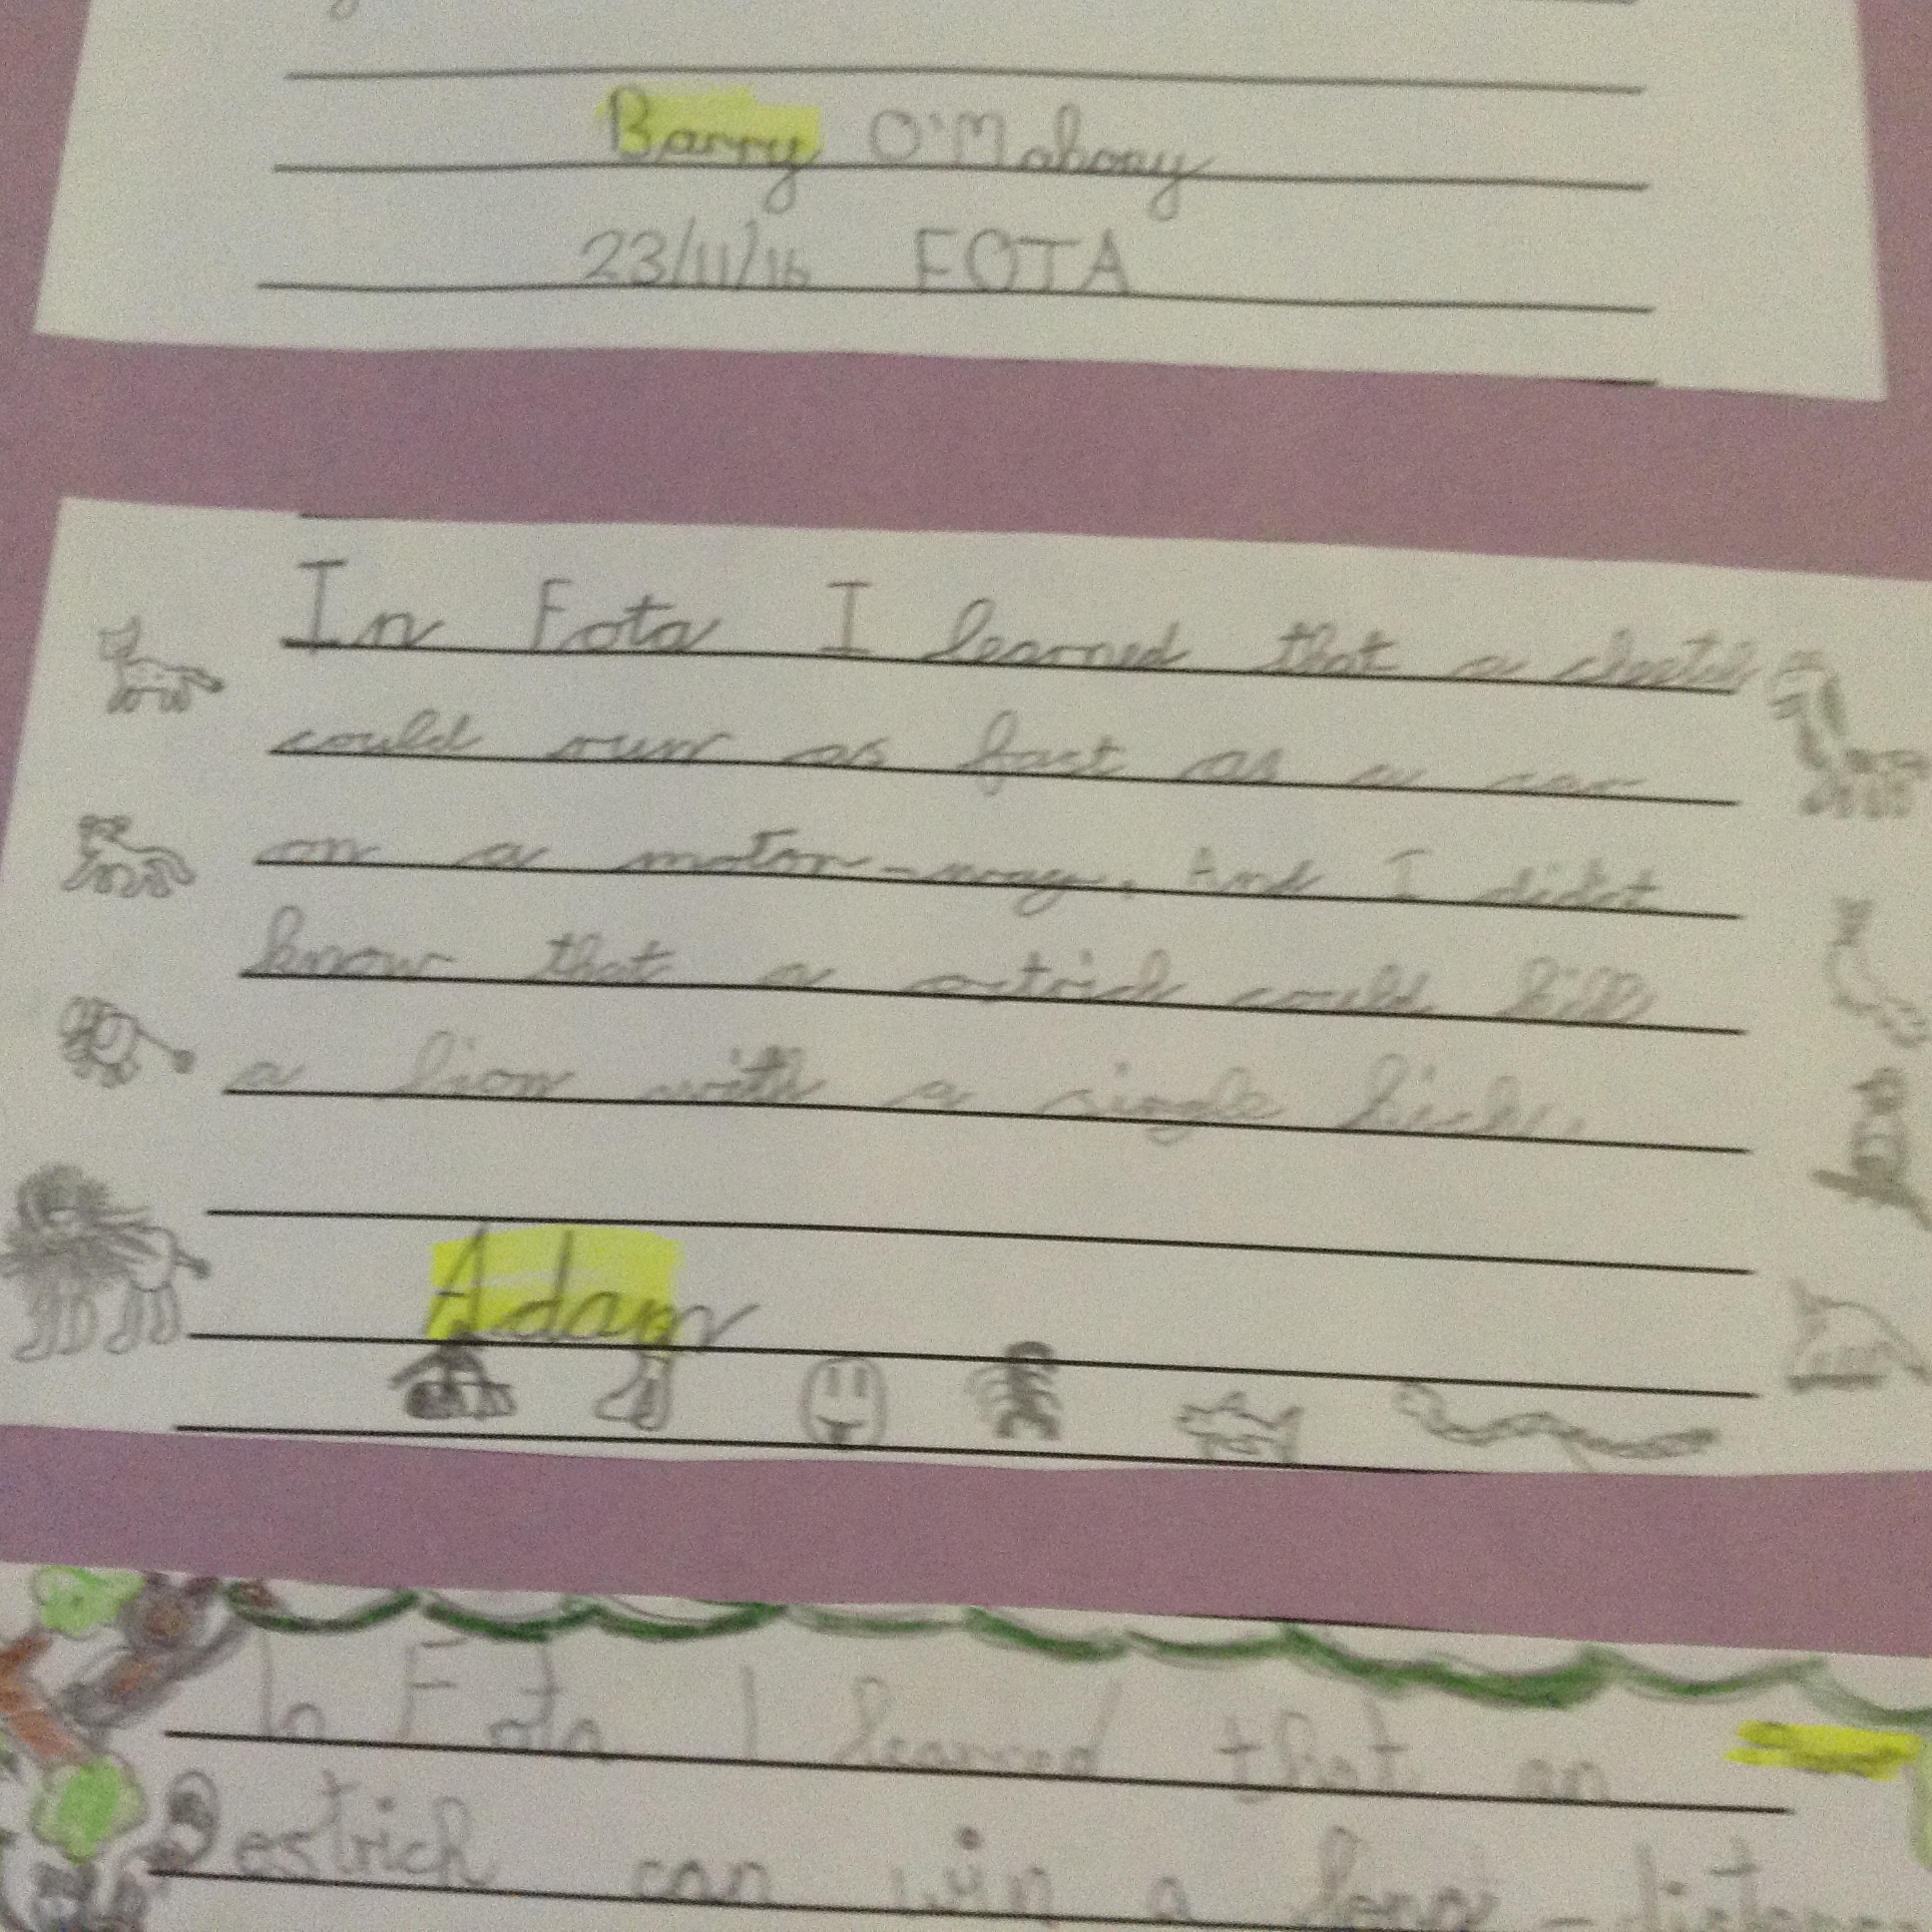 Barry O'Mahony
23/11/16 FOTA
In Fota I learned that a cheetah
could run as fast as a car
on a motor-way. And I didnt
know that a ostrich could kill
a lion with a single kick.
Adam
In Fota I learned that an
Oestrich can win a long-distan